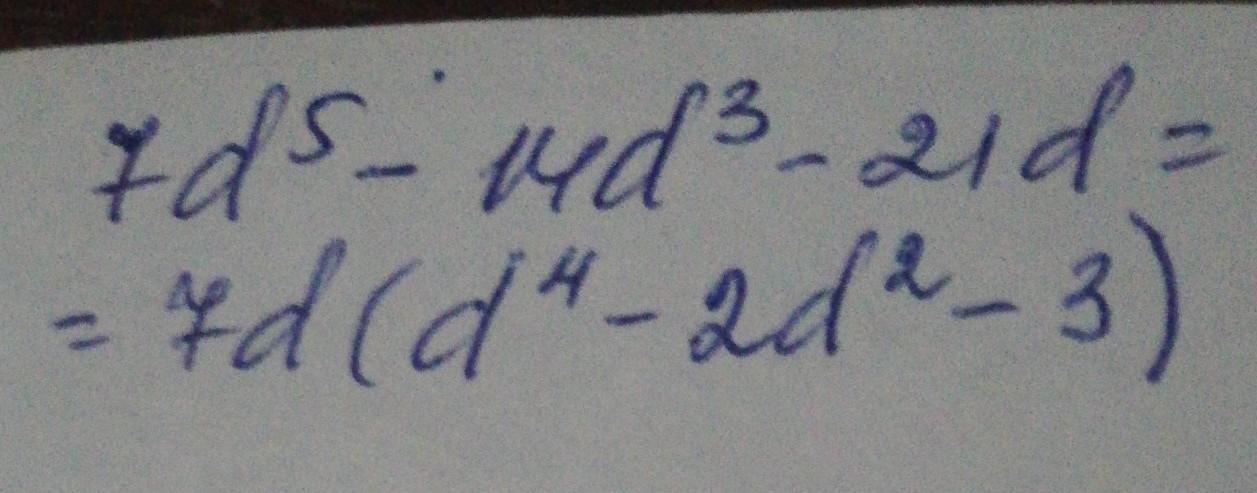 7d⁵ - 14d³ - 21d =
= 7d(d⁴ - 2d² - 3)